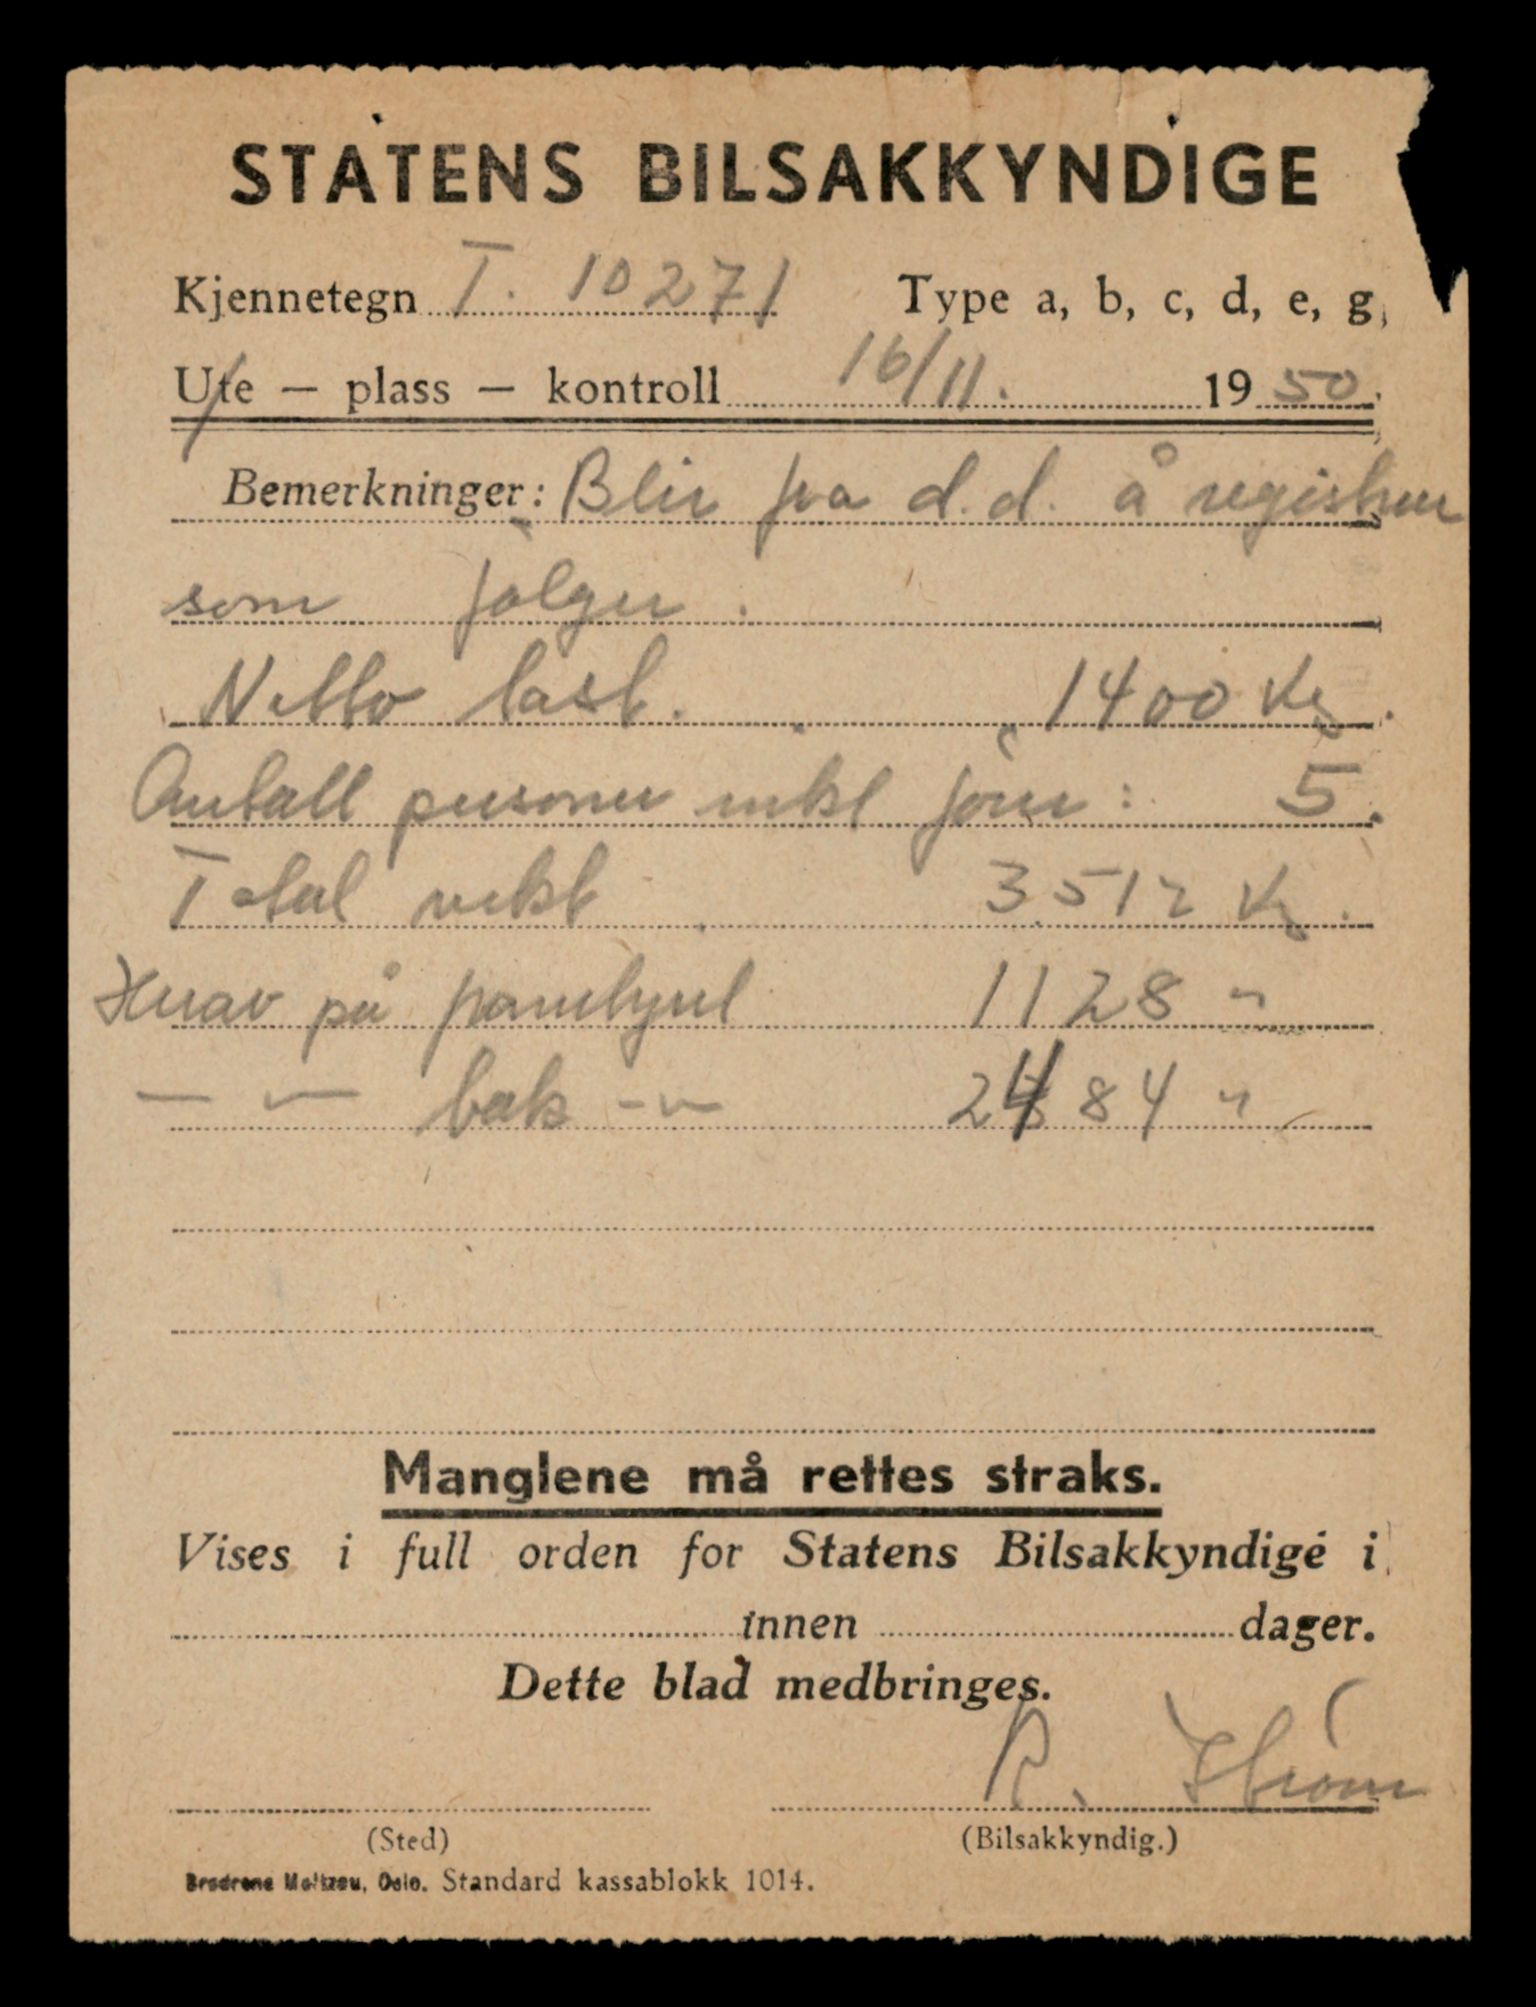 STATENS BILSAKKYNDIGE
Kjennetegn T. 10271 Type a, b, c, d, e, g,
Ute — plass — kontroll 16/11. 1950.
Bemerkninger: Blir fra d.d. å registrere
som følger.
Netto last. 1400 Kg.
Antall personer inkl fører: 5.
Total vekt 3512 Kg.
Krav på foran hjul 1128 "
— " — bak — " — 2484 "
Manglene må rettes straks.
Vises i full orden for Statens Bilsakkyndige i
innen dager.
Dette blad medbringes.
R. Strøm
(Sted) (Bilsakkyndig.)
Brødrene Moltzau, Oslo. Standard kassablokk 1014.